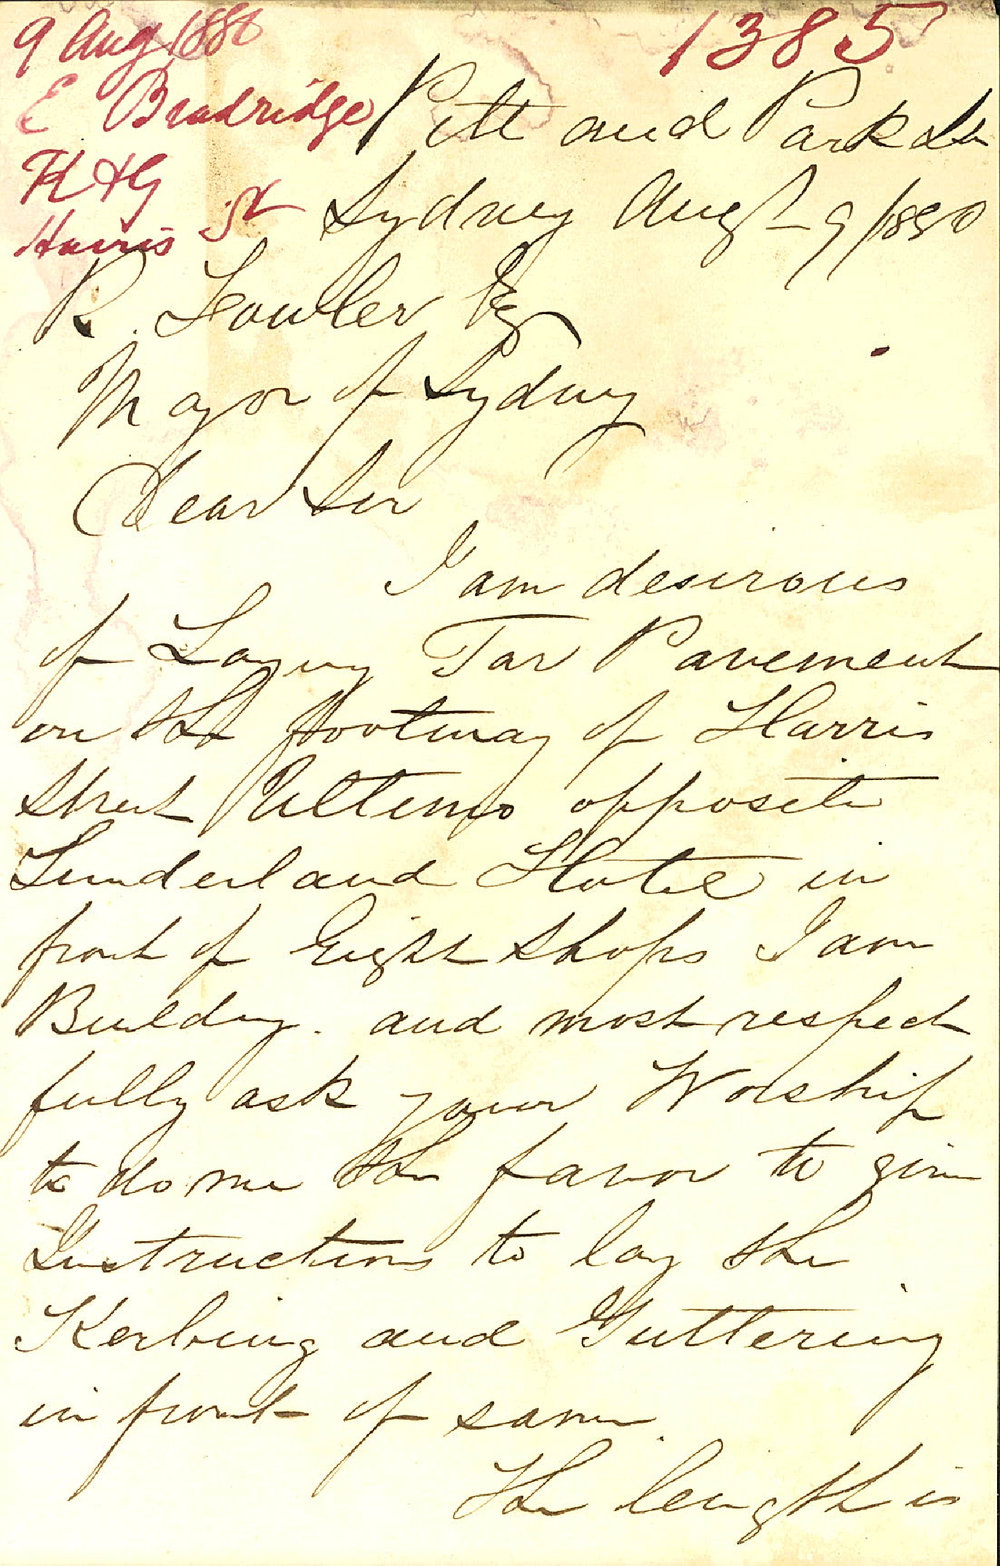 9 Aug 1880
1385
E Bradridge
K & G
Harris St
Pitt and Park Sts
Sydney Augt 9/1880
R. Fowler Esq
Mayor of Sydney
Dear Sir
I am desirous
of Laying Tar Pavement
on the footway of Harris
Street Ultimo opposite
Sunderland Hotel in
front of Eight Shops I am
Building. and most respect
fully ask your Worship
to do me the favor to give
Instructions to lay the
Kerbing and Guttering
in front of same.
The length is